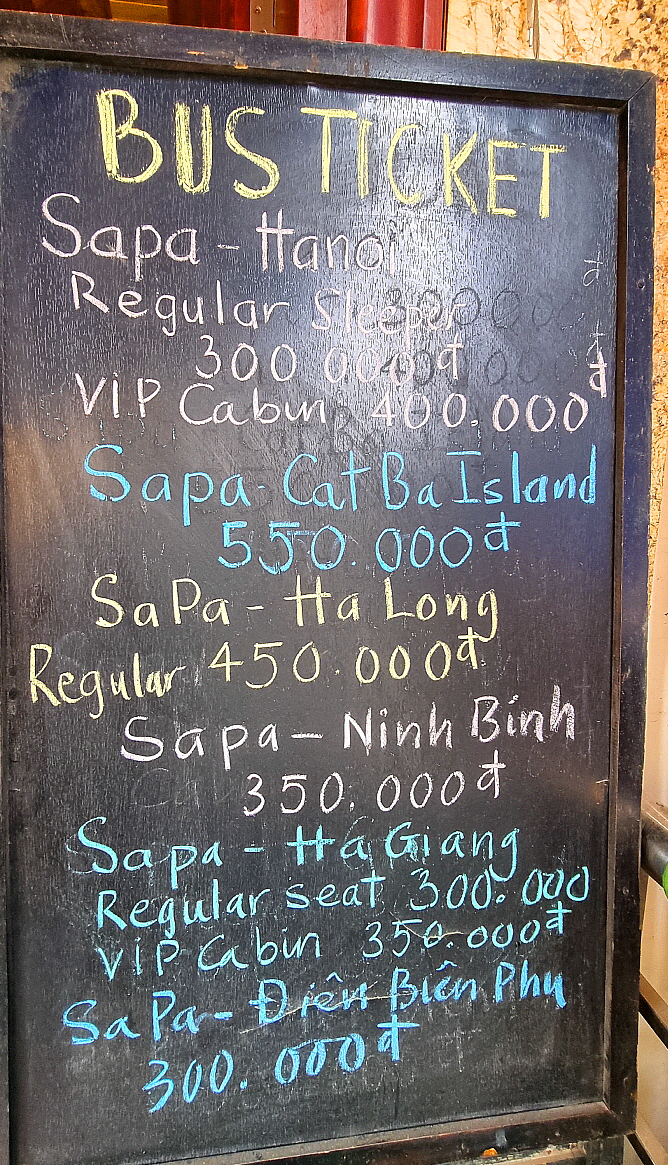 BUS TICKET
Sapa - Hanoi
Regular Sleeper
300 000đ
VIP Cabin 400.000đ
Sapa - Cat Ba Island
550.000đ
SaPa - Ha Long
Regular 450.000đ
Sapa - Ninh Binh
350.000đ
Sapa - Ha Giang
Regular seat 300.000
VIP Cabin 350.000đ
SaPa - Điện Biên Phu
300.000đ